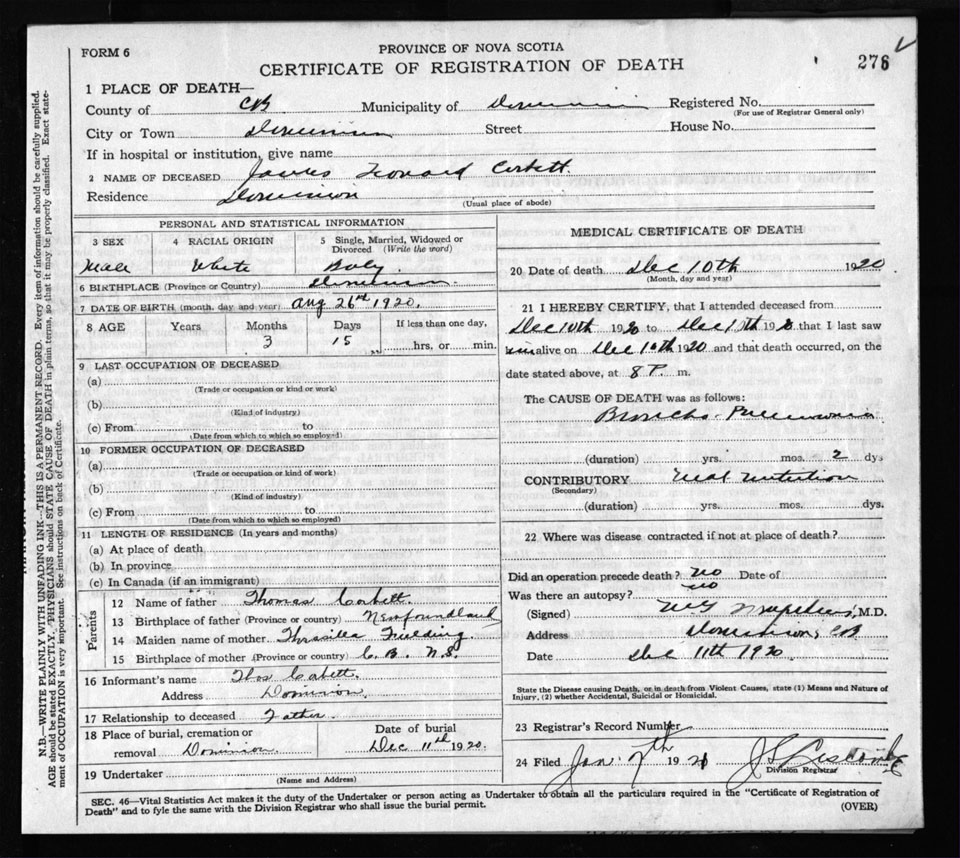 FORM 6
PROVINCE OF NOVA SCOTIA
CERTIFICATE OF REGISTRATION OF DEATH
276
1 PLACE OF DEATH—
County of CB Municipality of Dominion Registered No.
(For use of Registrar General only)
City or Town Dominion Street House No.
If in hospital or institution, give name
2 NAME OF DECEASED James Leonard Corbett
Residence Dominion
(Usual place of abode)
PERSONAL AND STATISTICAL INFORMATION
3 SEX 4 RACIAL ORIGIN 5 Single, Married, Widowed or Divorced (Write the word)
Male White Baby
6 BIRTHPLACE (Province or Country) Dominion
7 DATE OF BIRTH (month, day and year) Aug 26th 1920.
8 AGE Years Months Days If less than one day,
3 15 hrs. or min.
9 LAST OCCUPATION OF DECEASED
(a)
(Trade or occupation or kind of work)
(b)
(Kind of industry)
(c) From to
(Date from which to which so employed)
10 FORMER OCCUPATION OF DECEASED
(a)
(Trade or occupation or kind of work)
(b)
(Kind of industry)
(c) From to
(Date from which to which so employed)
11 LENGTH OF RESIDENCE (In years and months)
(a) At place of death
(b) In province
(c) In Canada (if an immigrant)
Parents
12 Name of father Thomas Corbett
13 Birthplace of father (Province or country) Newfoundland
14 Maiden name of mother Fielding
15 Birthplace of mother (Province or country) C. B. N.S.
16 Informant's name Thos Corbett
Address Dominion
17 Relationship to deceased Father
18 Place of burial, cremation or removal Dominion
Date of burial
Dec 11th 1920.
19 Undertaker
(Name and Address)
MEDICAL CERTIFICATE OF DEATH
20 Date of death Dec 10th 1920
(Month, day and year)
21 I HEREBY CERTIFY, that I attended deceased from
Dec 10th 1920 to Dec 10th 1920 that I last saw
him alive on Dec 10th 1920 and that death occurred, on the
date stated above, at 8 P. m.
The CAUSE OF DEATH was as follows:
Broncho-Pneumonia
(duration) yrs. mos. 2 dys
CONTRIBUTORY Mal Nutrition
(Secondary)
(duration) yrs. mos. dys.
22 Where was disease contracted if not at place of death?
Did an operation precede death? no Date of
Was there an autopsy? no
(Signed) M.D.
Address Dominion, CB
Date Dec 11th 1920
State the Disease causing Death, or in death from Violent Causes, state (1) Means and Nature of
Injury, (2) whether Accidental, Suicidal or Homicidal.
23 Registrar's Record Number
24 Filed Jan 7th 1921
Division Registrar
SEC. 46—Vital Statistics Act makes it the duty of the Undertaker or person acting as Undertaker to obtain all the particulars required in the "Certificate of Registration of
Death" and to fyle the same with the Division Registrar who shall issue the burial permit. (OVER)
N.B.—WRITE PLAINLY WITH UNFADING INK—THIS IS A PERMANENT RECORD. Every item of information should be carefully supplied.
AGE should be stated EXACTLY. PHYSICIANS should STATE CAUSE OF DEATH in plain terms, so that it may be properly classified. Exact statement of OCCUPATION is very important. See instructions on back of Certificate.